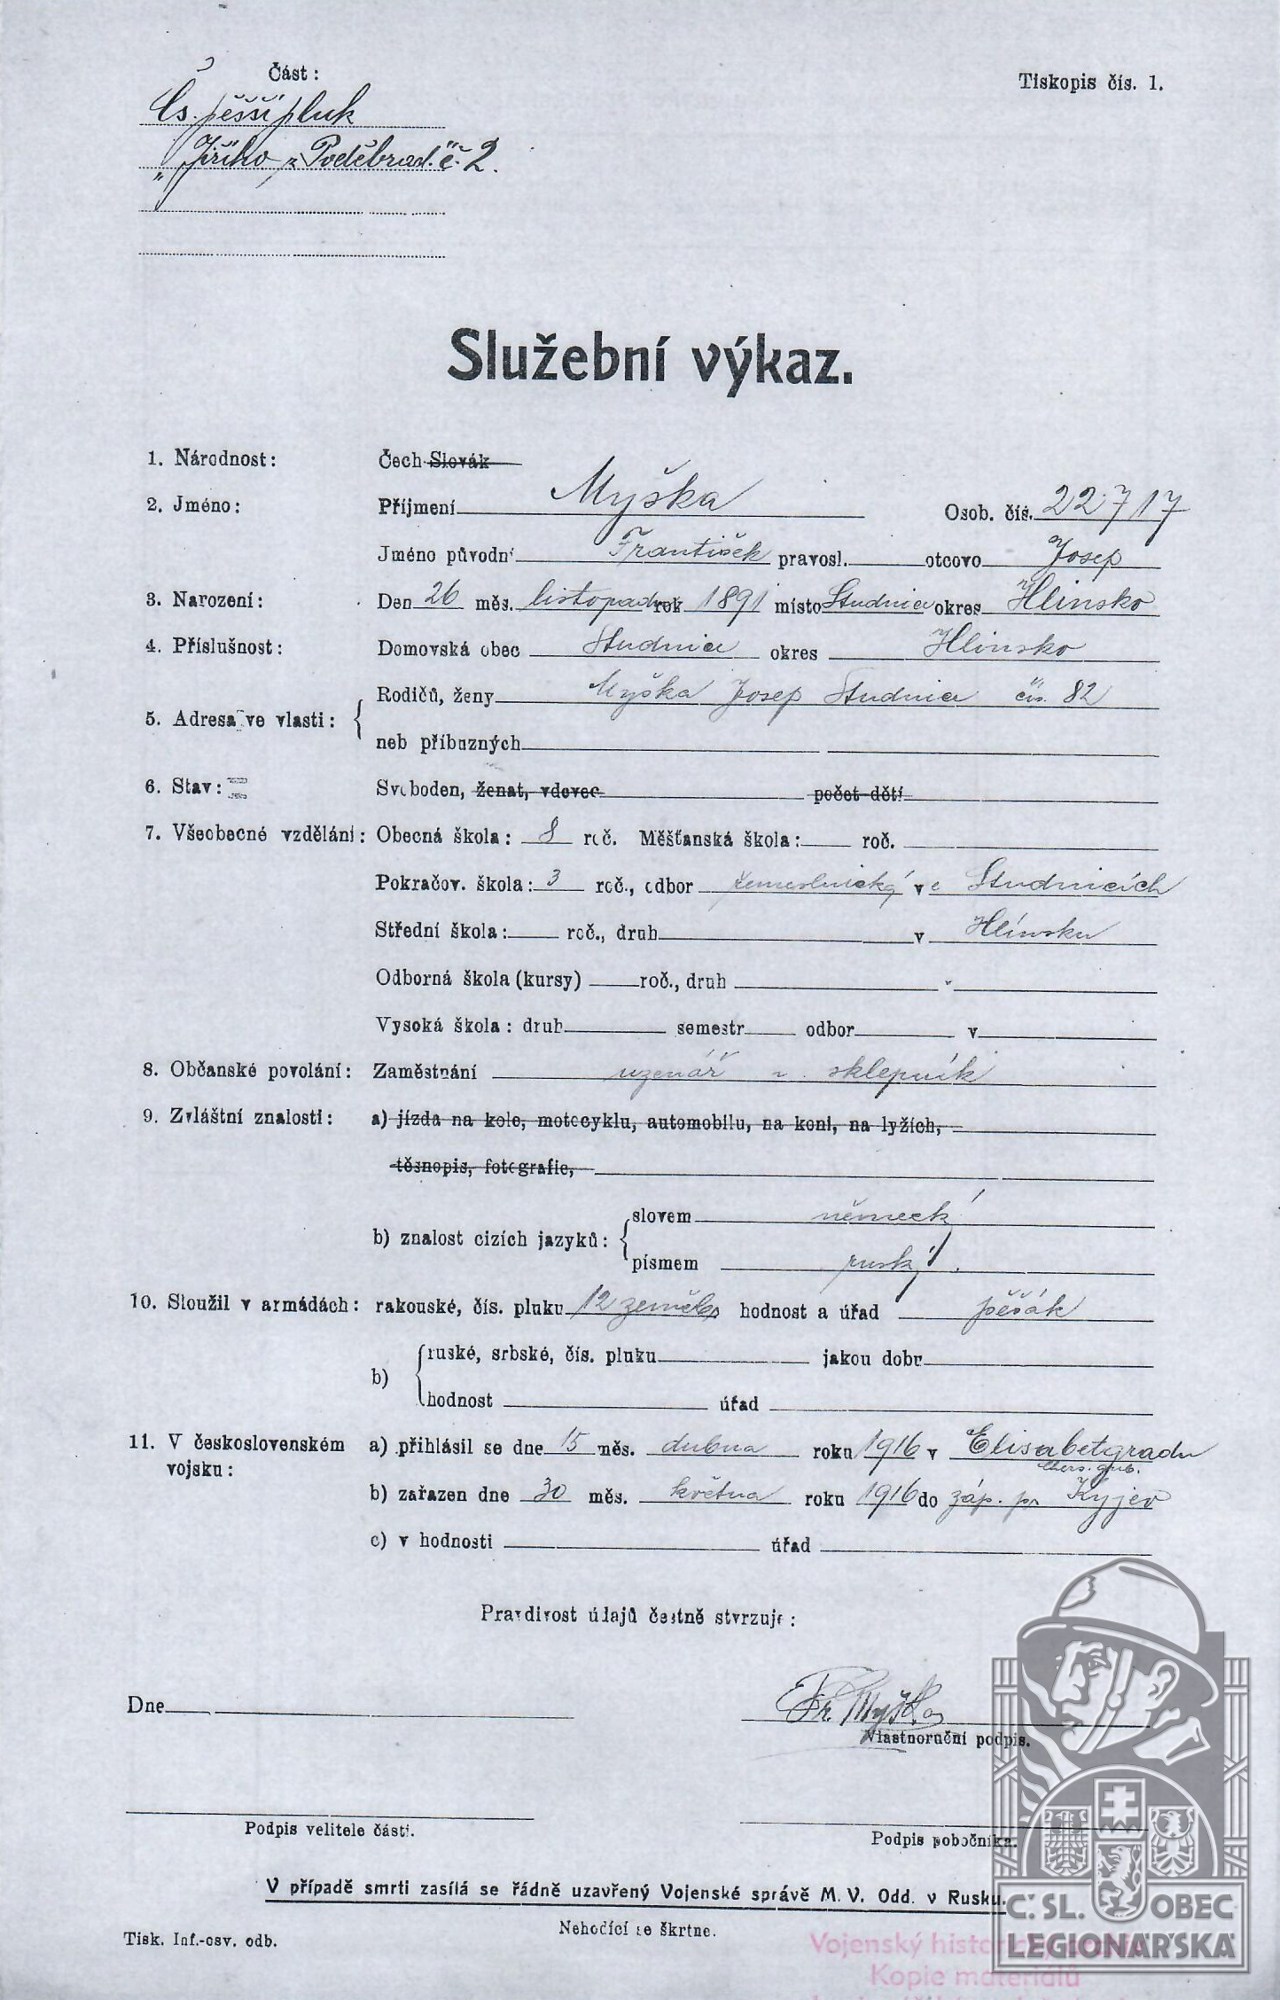 Část:
Tiskopis čís. 1.
Čs. pěší pluk
„Jiřího z Poděbrad" č. 2.
Služební výkaz.
1. Národnost: Čech Slovák
2. Jméno: Příjmení Myška Osob. čís. 22717
Jméno původní František pravosl. otcovo Josep
3. Narození: Den 26 měs. listopad rok 1891 místo Studnice okres Hlinsko
4. Příslušnost: Domovská obec Studnice okres Hlinsko
5. Adresa ve vlasti: Rodičů, ženy Myška Josep Studnice čís. 82
neb příbuzných
6. Stav: Svoboden, ženat, vdovec počet dětí
7. Všeobecné vzdělání: Obecná škola: 8 roč. Měšťanská škola: roč.
Pokračov. škola: 3 roč., odbor řemeslnický ve Studnicích
Střední škola: roč., druh v Hlinsku
Odborná škola (kursy) roč., druh
Vysoká škola: druh semestr odbor v
8. Občanské povolání: Zaměstnání uzenář a sklepník
9. Zvláštní znalosti: a) jízda na kole, motocyklu, automobilu, na koni, na lyžích,
těsnopis, fotografie,
b) znalost cizích jazyků: slovem německý
písmem ruský.
10. Sloužil v armádách: rakouské, čís. pluku 12 zeměb. hodnost a úřad pěšák
b) ruské, srbské, čís. pluku jakou dobu
hodnost úřad
11. V československém vojsku: a) přihlásil se dne 15 měs. dubna roku 1916 v Elisabetgradu
Chers. gub.
b) zařazen dne 30 měs. května roku 1916 do záp. pr. Kyjev
c) v hodnosti úřad
Pravdivost údajů čestně stvrzuje:
Dne Fr. Myška
Vlastnoruční podpis.
Podpis velitele části.
Podpis pobočníka.
V případě smrti zasílá se řádně uzavřený Vojenské správě M. V. Odd. v Rusku.
Nehodící se škrtne.
Tisk. Inf.-osv. odb.
Č. SL. OBEC
LEGIONÁŘSKÁ
Vojenský
Kopie materiálů